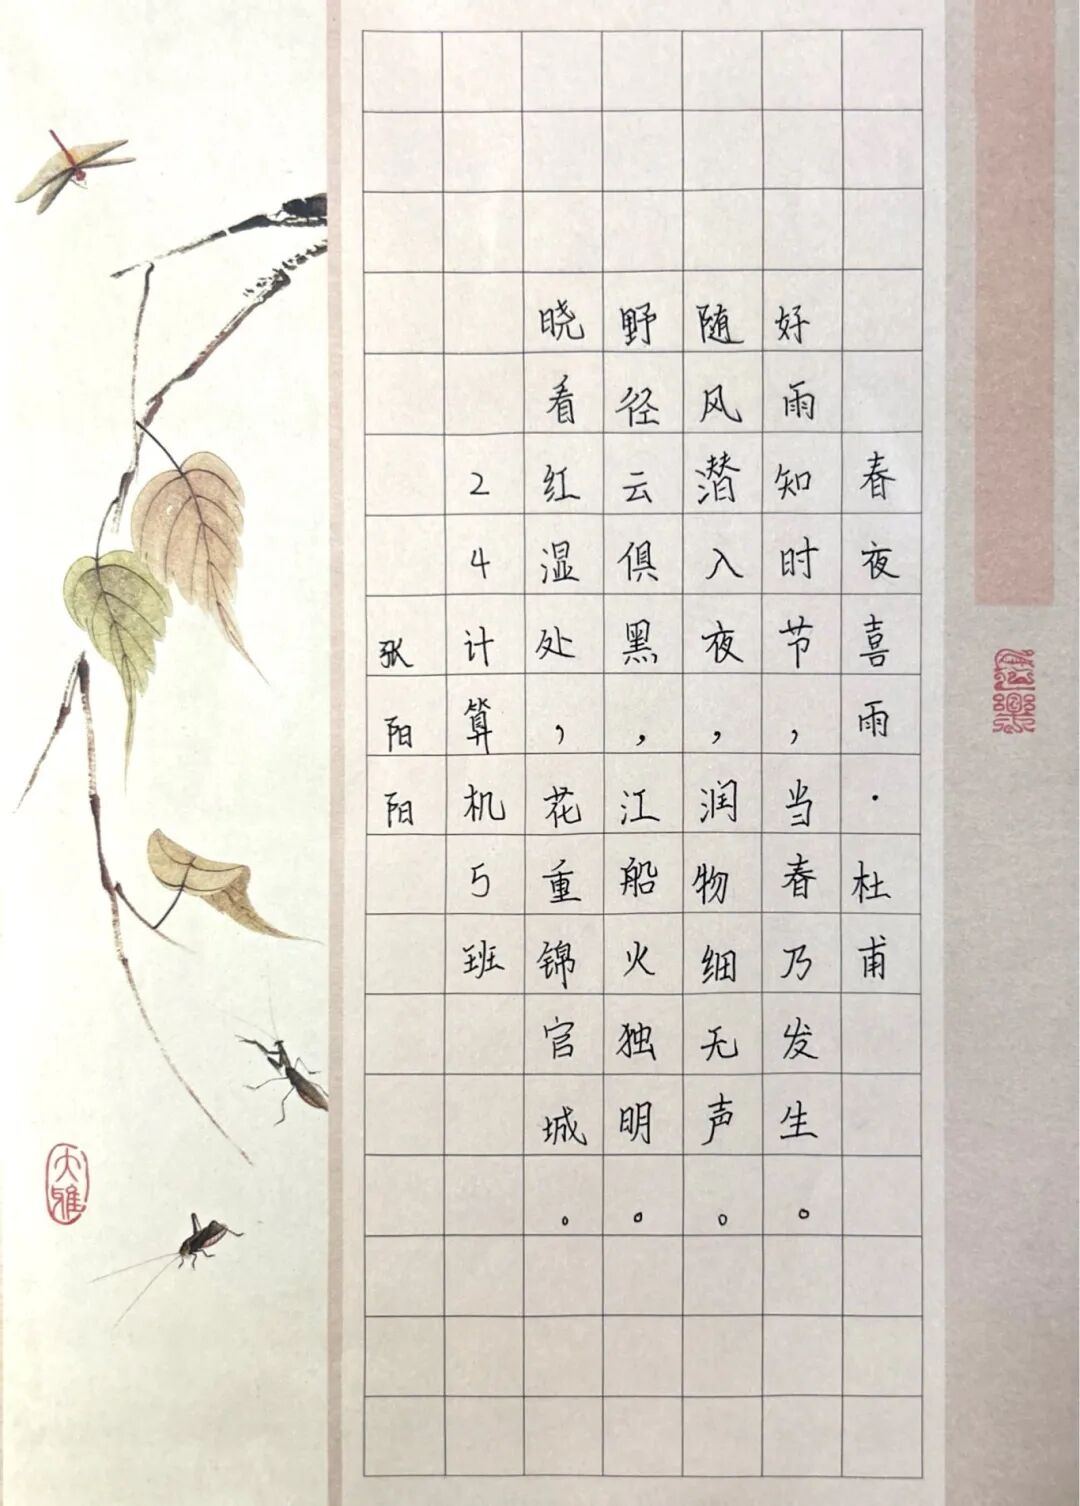 春夜喜雨·杜甫
好雨知时节,当春乃发生。
随风潜入夜,润物细无声。
野径云俱黑,江船火独明。
晓看红湿处,花重锦官城。
24计算机5班
张阳阳
大雅